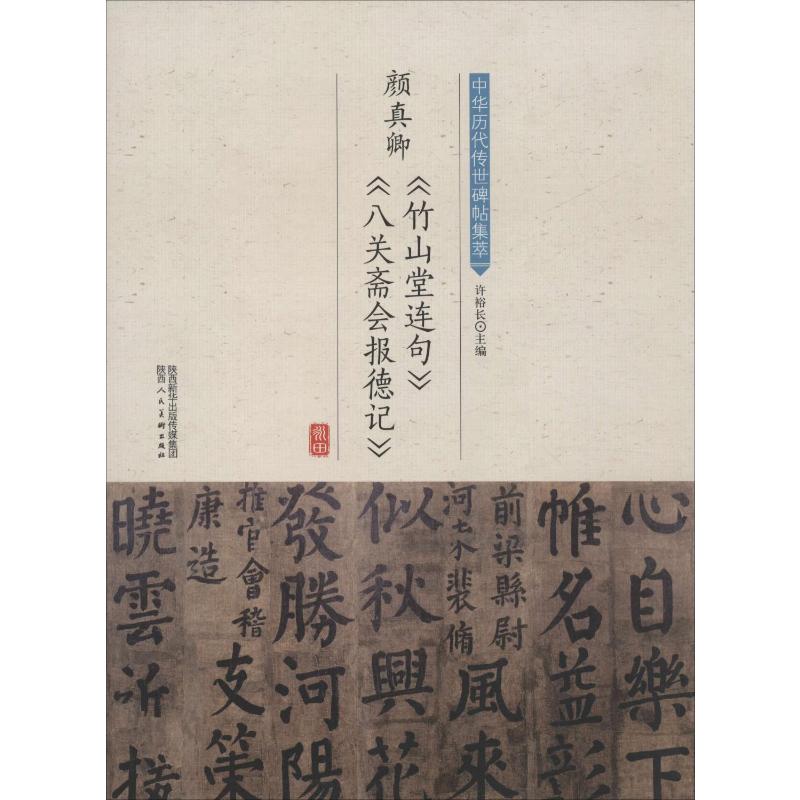 中华历代传世碑帖集萃
许裕长⊙主编
颜真卿
《竹山堂连句》
《八关斋会报德记》
陕西新华出版传媒集团
陕西人民美术出版社
心自樂下
帷名益彰
前梁縣尉
河东裴脩
風來
似秋興花
發勝河陽
推官會稽
康造
支策
曉雲近接